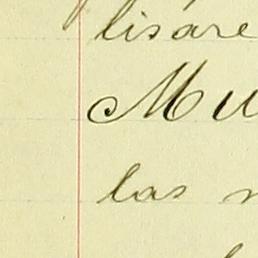 lisare
Mu
las